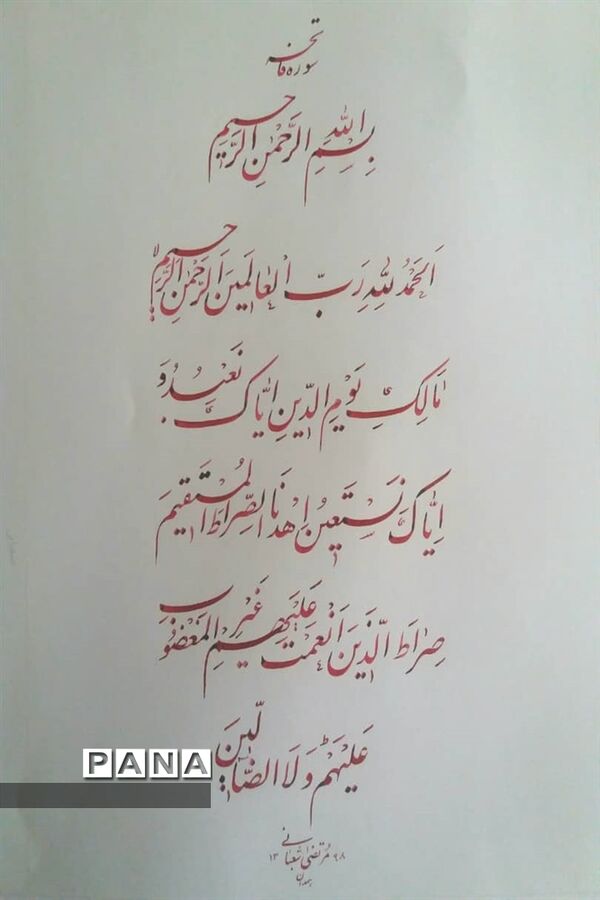 سوره فاتحه
بِسْمِ اللهِ الرَّحْمٰنِ الرَّحیمِ
اَلْحَمْدُ لِلّٰهِ رَبِّ الْعالَمینَ اَلرَّحْمٰنِ الرَّحیمِ
مٰالِکِ یَوْمِ الدّینِ اِیّٰاکَ نَعْبُدُ وَ
اِیّٰاکَ نَسْتَعینُ اِهْدِنَا الصِّرٰاطَ الْمُسْتَقیمَ
صِرٰاطَ الَّذینَ اَنْعَمْتَ عَلَیْهِمْ غَیْرِ الْمَغْضُوبِ
عَلَیْهِمْ وَ لَا الضّٰالّینَ
PANA
مرتضی شعبانی ۱۳۹۸
همدان